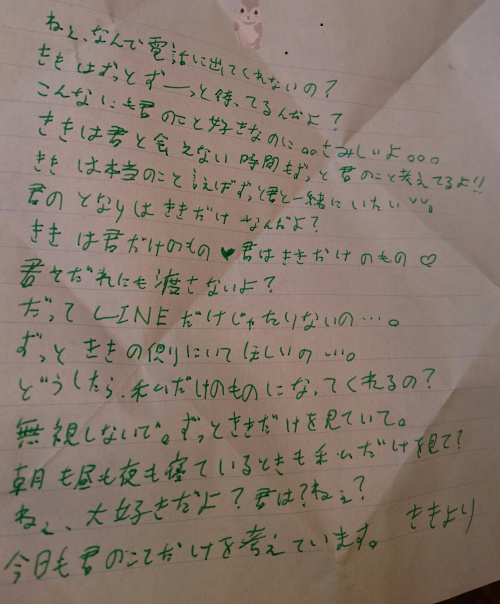 ねぇ、なんで電話に出てくれないの?
ききはずっとずーっと待ってるんだよ?
こんなにも君のこと好きなのに。。さみしいよ。。。
ききは君と会えない時間もずっと君のこと考えてるよ!!
ききは本当のこと言えばずっと君と一緒にいたい
君のとなりはききだけなんだよ?
ききは君だけのもの♥君はききだけのもの♡
君をだれにも渡さないよ?
だってLINEだけじゃたりないの…。
ずっとききの側りにいてほしいの…。
どうしたら、私だけのものになってくれるの?
無視しないで。ずっとききだけを見ていて。
朝も昼も夜も寝ているときも私だけを見て?
ねぇ、大好きだよ?君は?ねぇ?
今日も君のことだけを考えています。
ききより